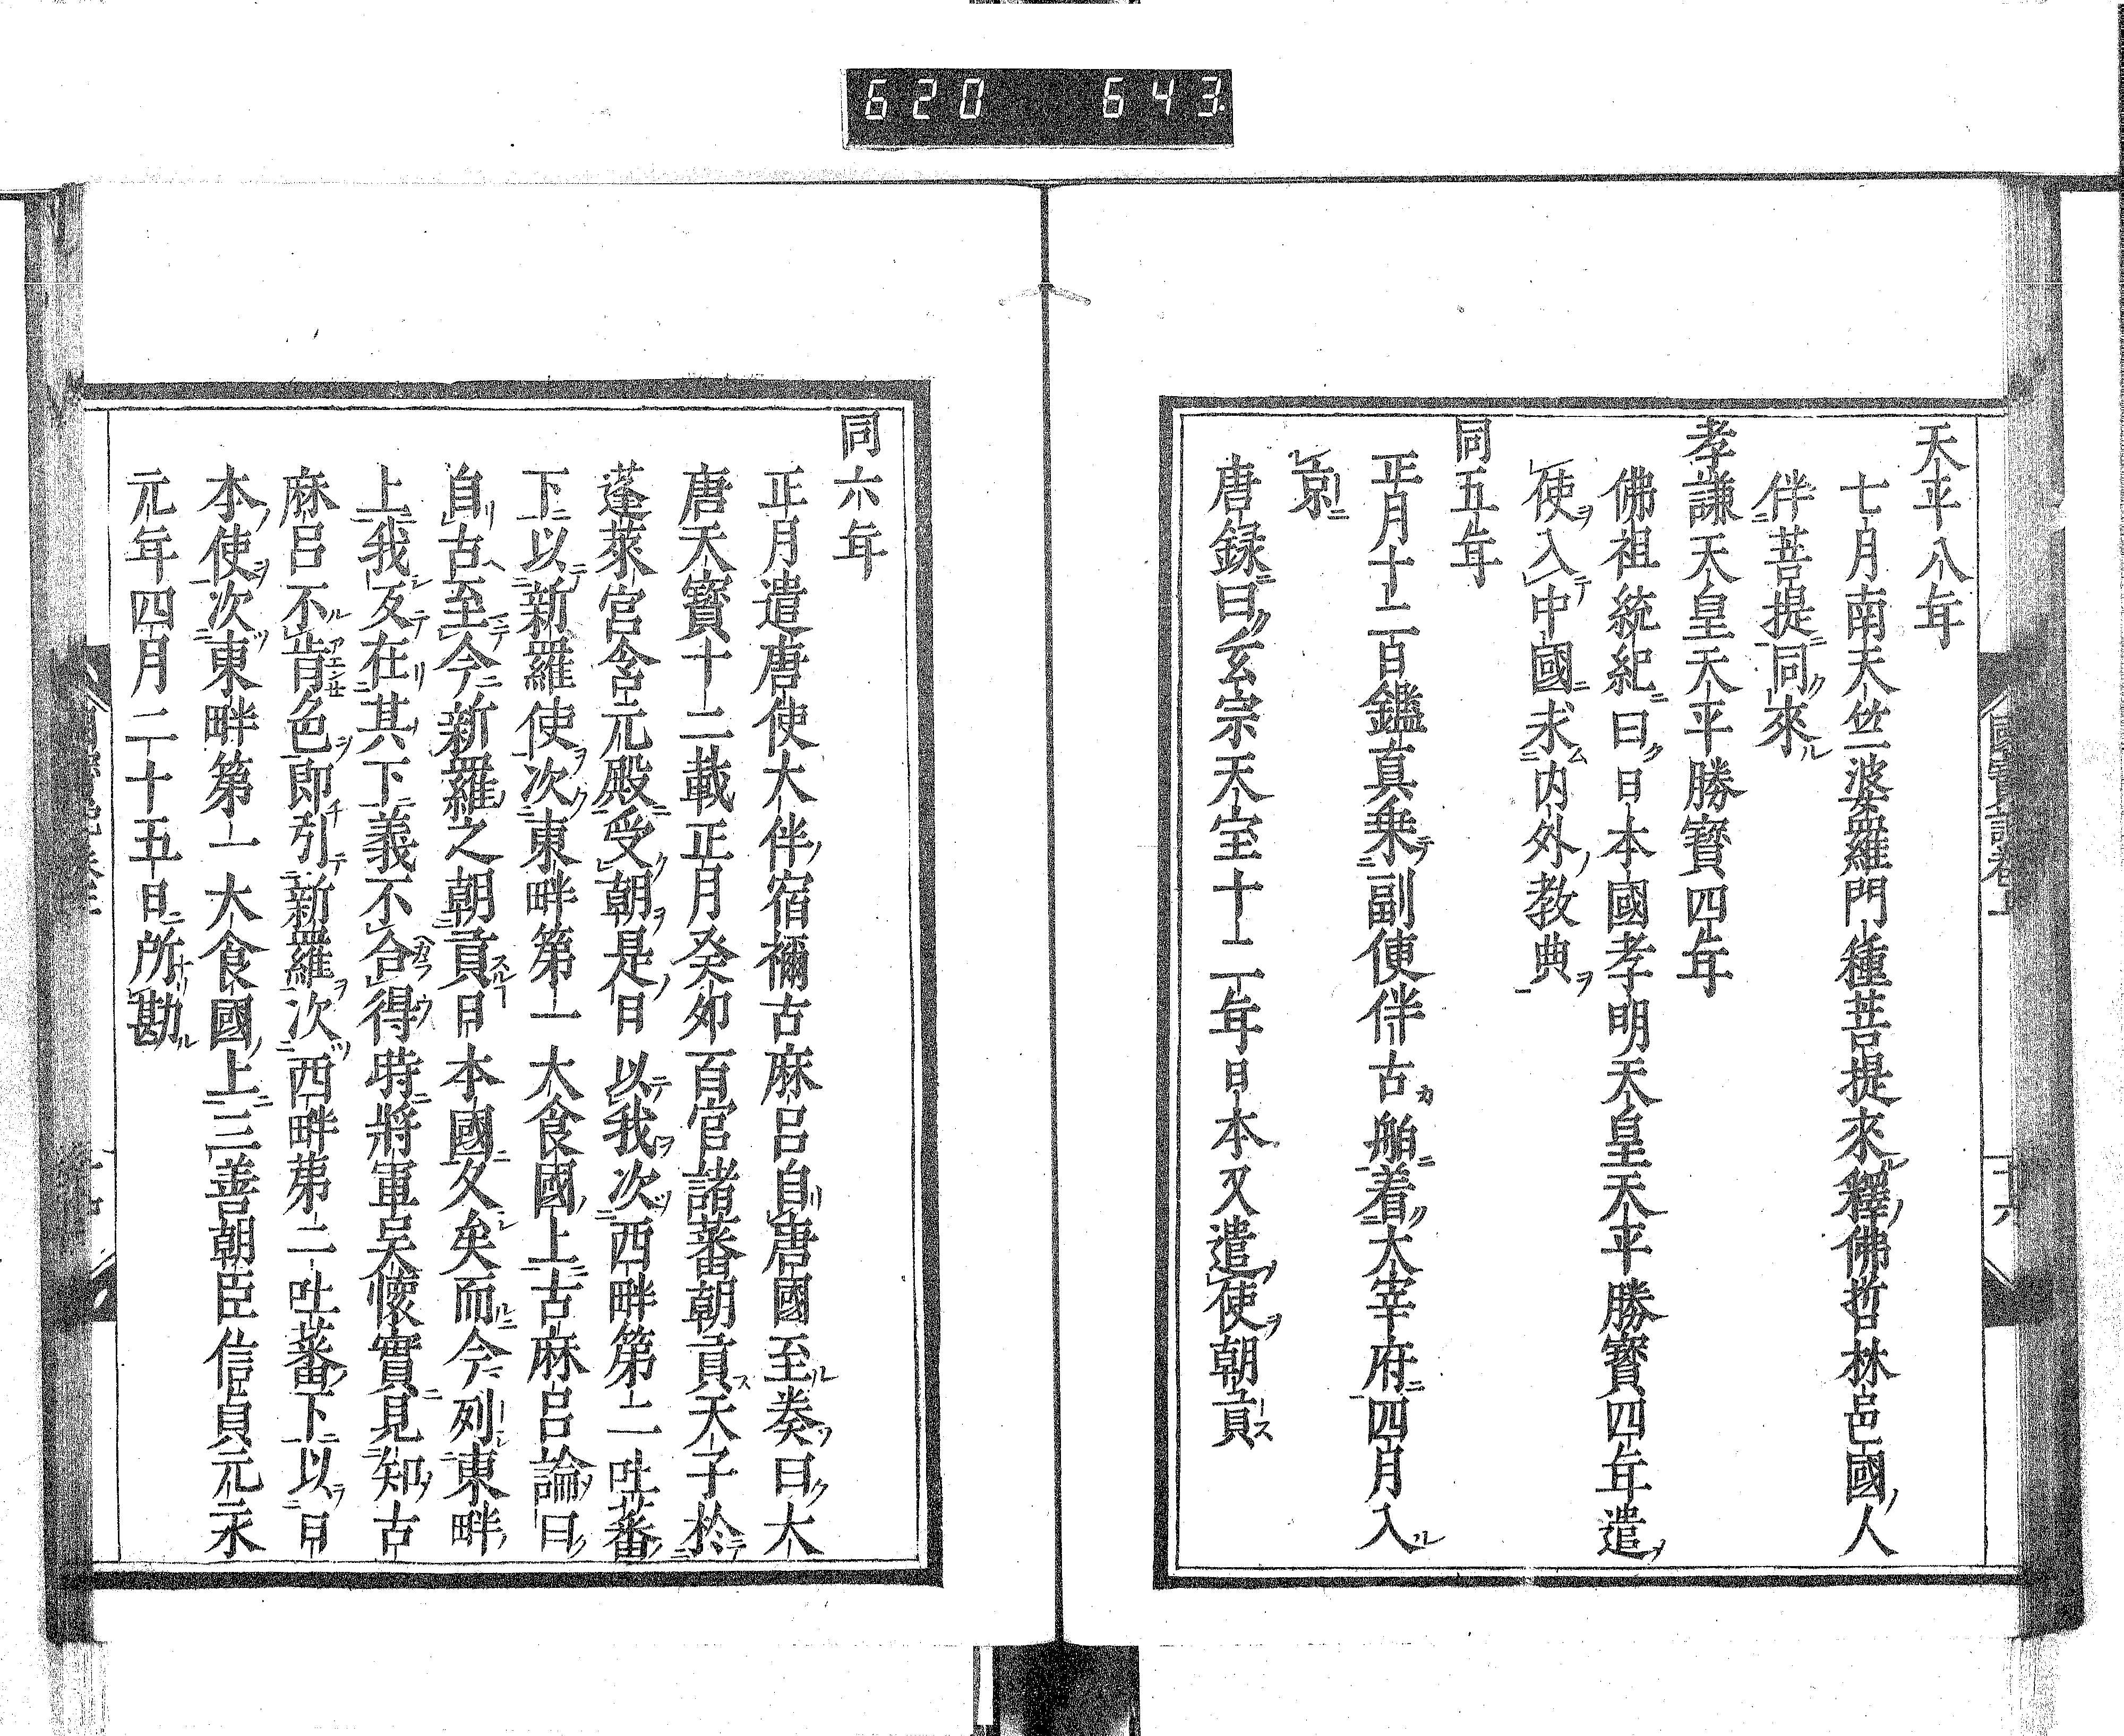 620 643
天平八年
七月南天竺婆羅門種菩提來釋佛哲林邑國人
伴菩提同來
孝謙天皇天平勝寳四年
佛祖統紀曰日本國孝明天皇天平勝寳四年遣
使入中國求内外教典
同五年
正月十二百鑑真乗副使伴古舶着大宰府四月入
京
唐録曰玄宗天宝十二年日本又遣使朝貢
同六年
正月遣唐使大伴宿禰古麻呂自唐國至奏曰大
唐天寳十二載正月癸卯百官諸蕃朝貢天子於
蓬萊宮含元殿受朝是日以我次西畔第二吐蕃
下以新羅使次東畔第一大食國上古麻呂論曰
自古至今新羅之朝貢日本國久矣而今列東畔
上我反在其下義不合得時將軍吴懷實見知古
麻呂不肯色即引新羅次西畔第二吐蕃下以日
本使次東畔第一大食國上三善朝臣信貞元永
元年四月二十五日所勘